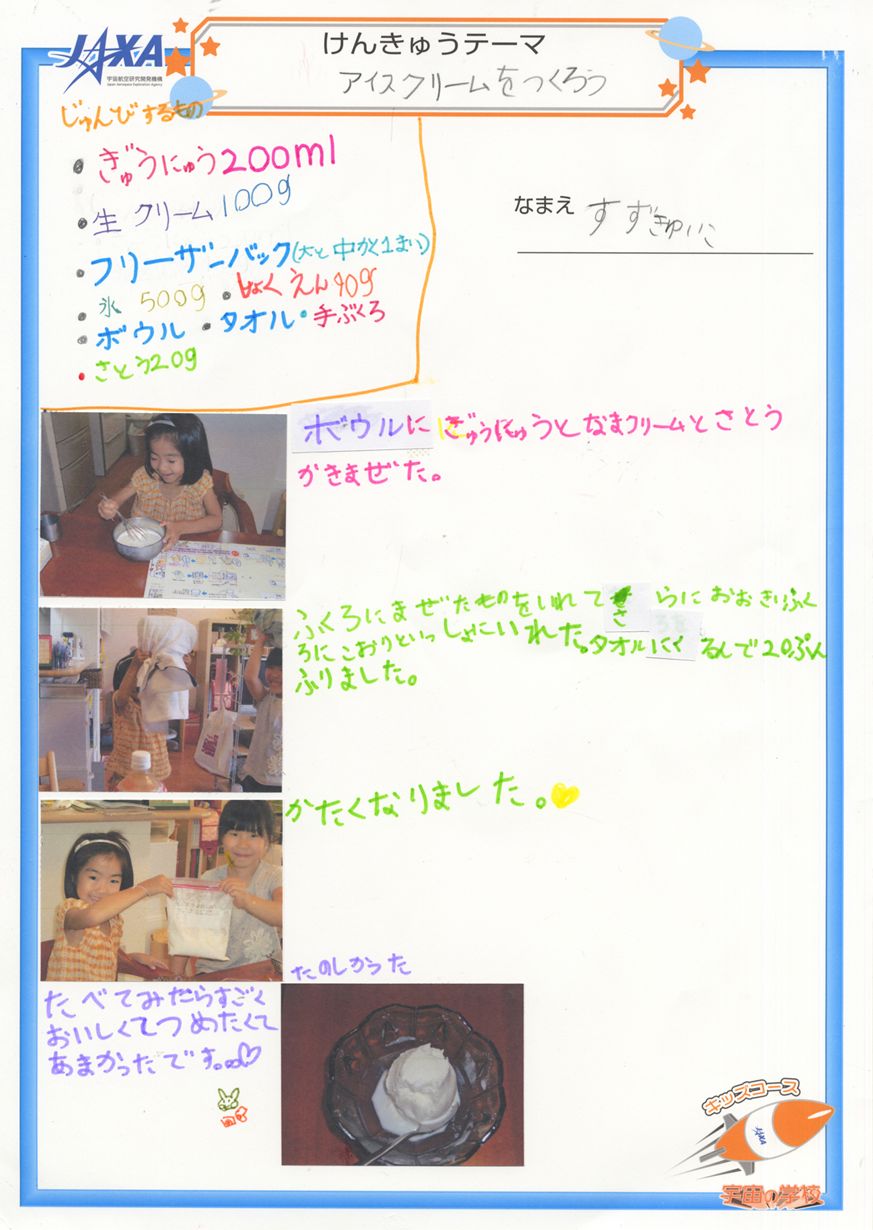 JAXA
宇宙航空研究開発機構
Japan Aerospace Exploration Agency
けんきゅうテーマ
アイスクリームをつくろう
じゅんびするもの
なまえ すずきゆいこ
• ぎゅうにゅう200ml
• 生クリーム100g
• フリーザーバック(大と中かく1まい)
• 氷 500g • しょくえん90g
• ボウル • タオル • 手ぶくろ
• さとう20g
ボウルに ぎゅうにゅうとなまクリームとさとう
かきまぜた。
ふくろにまぜたものをいれてさらにおおきいふく
ろにこおりといっしょにいれた。タオルにくるんで20ぷん
ふりました。
かたくなりました。
たのしかった
たべてみたらすごく
おいしくてつめたくて
あまかったです。
キッズコース
JAXA
宇宙の学校